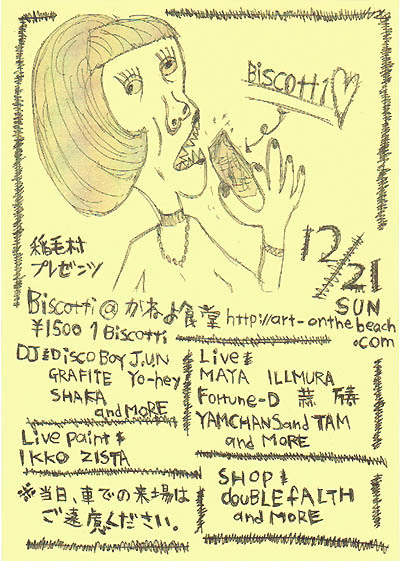 Biscotti
稲毛村
プレゼンツ
12/21
SUN
Biscotti @ かねよ食堂 http://art-onthebeach.com
¥1500 1 Biscotti
DJ: Disco Boy J.UN
GRAFITE Yo-hey
SHAKA
and MORE
Live:
MAYA ILLMURA
Fortune-D
YAMCHANS and TAM
and MORE
Live paint:
IKKO ZISTA
※当日、車での来場は
ご遠慮ください。
SHOP:
doUBLEfAITH
and MORE